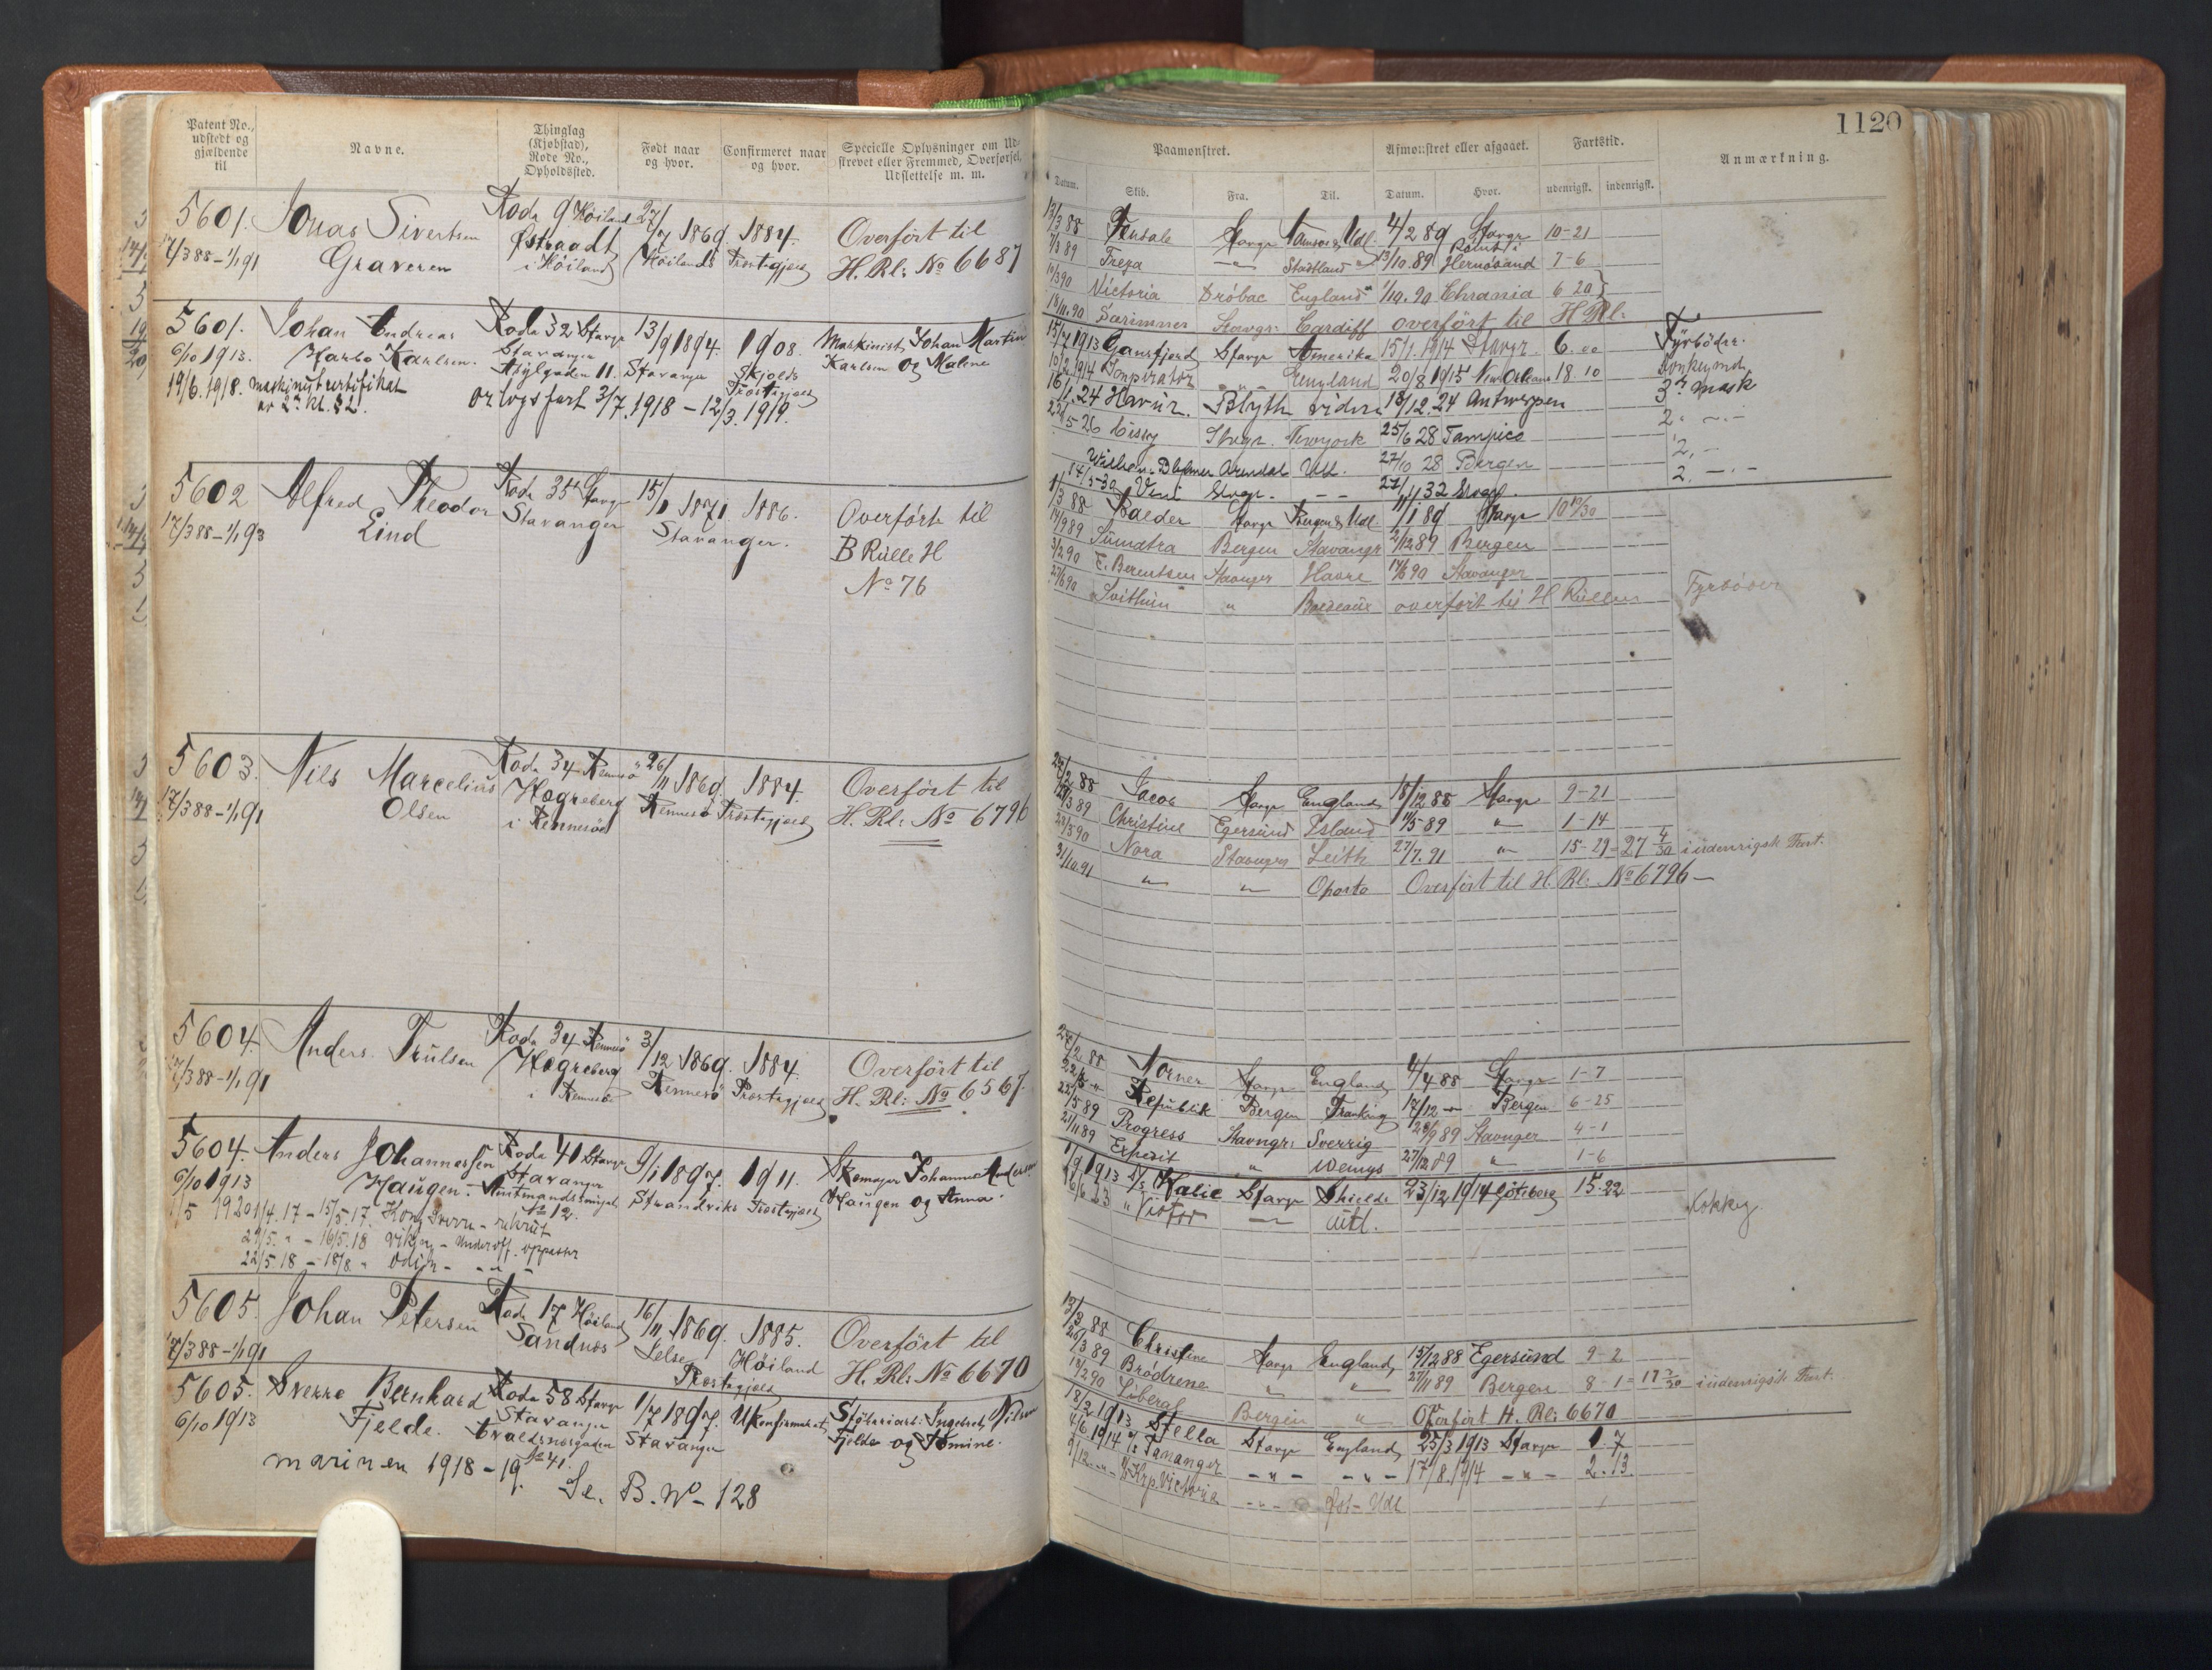 Patent No., udstedt og gjældende til
Navne.
Thinglag (Kjøbstad), Rode No., Opholdssted.
Født naar og hvor.
Confirmeret naar og hvor.
Specielle Oplysninger om Udstrevet eller Fremmed, Overførsel, Udslettelse m. m.
5601. Jonas Sivertsen Rode 9 Höiland 27/7 1869. 1884. Overført til
17/3 88 - 1/1 91 Graveren Østraadt i Höiland Höilands Præstegjæld H. Rl: No 6687
5601. Johan Andreas Rode 32 Stavgr 13/9 1894. 1908. Maskinist Johan Martin
6/10 1913. Karlsen. Stavanger 11. Stavanger Skjolds Præstegjæld Karlsen og Maline
19/6. 1918. maskinistcertifikat
av 2. kl. § 2. orlogsfart 3/7. 1918 - 12/3. 1919.
5602 Alfred Theodor Rode 35 Stavgr 15/1 1871. 1886. Overført til
17/3 88 - 1/1 93 Lind Stavanger Stavanger. B Rulle H
No 76
5603. Nils Marcelius Rode 34 Rennesö 26/11 1869. 1884. Overført til
17/3 88 - 1/1 91 Olsen Hogreberg i Rennesö Rennesö Præstegjæld H. Rl: No 6796
5604. Anders Trulsen Rode 34 Rennesö 3/12 1869. 1884. Overført til
17/3 88 - 1/1 91 Hogreberg i Rennesö Rennesö Præstegjæld H. Rl: No 6567.
5604. Anders Johannessen Rode 41 Stavgr 9/1 1897. 1911. Johannes Andersen
6/10 1913 Haugen. Stavanger No 12. Strandviks Præstegjæld Haugen og Anna.
1/5 1920 1/4. 17 - 15/5. 17. Kong Sverre - rekrut
29/5. " - 16/5. 18 Viking - Underoff. oppasser
22/5. 18 - 18/8 " Odin - " -
5605. Johan Petersen Rode 17 Höiland 16/11 1869. 1885. Overført til
17/3 88 - 1/1 91 Sandnæs Höiland Præstegjæld H. Rl: No 6670
5605. Sverre Bernhard Rode 58 Stavgr 1/7 1897. Ukonfirmeret Nilsen
6/10 1913 Fjelde. Stavanger No 41. Stavanger Fjelde og Tomine.
marinen 1918 - 19. Se. B. No - 128
1120
Paamønstret.
Afmønstret eller afgaaet.
Fartstid.
Anmærkning.
Datum. Skib. Fra. Til. Datum. Hvor. udenrigsk. indenrigsk.
13/3 88 Stavgr Udl. 4/2 89 Stavgr 10-21
7/3 89 Freya " 13/10. 89 Hernösand 7-6
10/3 90 Victoria Dröbac England 1/10. 90 Chrania 6 20
18/11. 90 Særimner Stavgr: Cardiff overført til H Rl:
15/7 1913 Gansfjord Stavgr Amerika 15/1. 1914 Stavgr. 6. 00 Fyrböder.
10/2. 1914 England 20/8 1915 New Orleans 18. 10 Donkeymd.
16/1. 24 Blyth 18/12. 24 Antwerpen 3. mask
5 26 Stvgr. Newyork 25/6 28 Tampico 2.
Arendal Utl. 27/10 28 Bergen 2.
14/5-30 Stvgr. - - 27/1 32 Stvgr. 2.
1/3 88 Balder Stavgr Bergen & Udl. 11/1 89 Stavgr 10 19/30
14/9 89 Sumatra Bergen Stavangr 2/12 89 Bergen
3/2 90 E. Berentsen Stavanger Havre 17/6 90 Stavanger
27/6 90 Svithun " Bordeaux overført til H Rullen Fyrböder
27/2 88 Jacob Stavgr England 18/12 88 Stavgr 9-21
3 89 Christine Egersund Island 14/5 89 " 1-14
23/3 90 Nora Stavanger Leith 27/7. 91 " 15-29 = 27 4/30 i udenrigsk Fart.
31/10. 91 " " Oporto Overført til H. Rl: No 6796 -
27/2 88 Norner Stavgr England 4/4 88 Stavgr 1-7
22/5 " Republik Bergen 17/12 " Bergen 6-25
22/5 89 Progress Stavngr: Sverrig 20/9 89 Stavanger 4-1
21/11 89 Expedit " Wemys 27/12 89 " 1-6
1/9 1913 Stavgr Shields 23/12 1914 Göteborg 15.22
16/6 23 " - Utl.
13/3 88 Christine Stavgr England 15/12 88 Egersund 9-2
26/3 89 Brödrene " " 27/11 89 Bergen 8-1 = 17 3/30 i udenrigsk Fart.
18/2 90 Liberal Bergen " Overført H. Rl: 6670
18/2. 1913 Stella Stavgr England 25/3 1913 Stavgr 1. 7
4/6 1914 Tananger - " - - " - 17/8. 1914 - " - 2. 13.
9/12. " Krp. Victoria - " - Øst - Udl